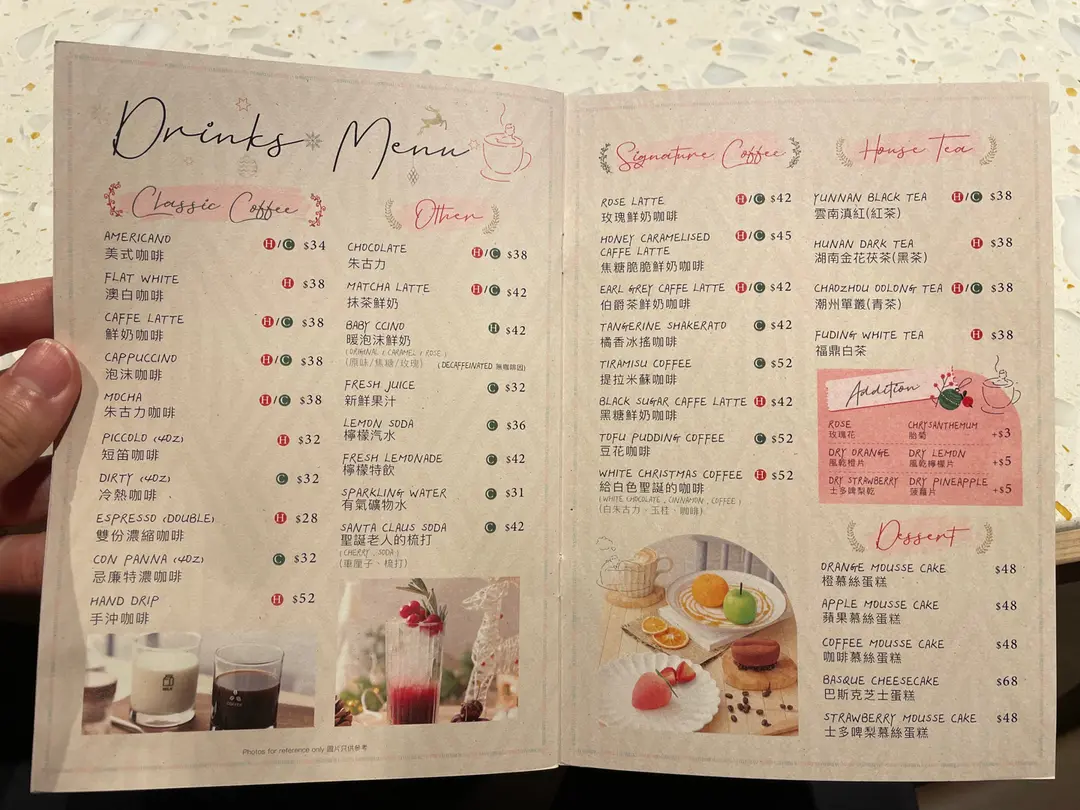 Drinks Menu
Classic Coffee
AMERICANO H/C $34
美式咖啡
FLAT WHITE H $38
澳白咖啡
CAFFE LATTE H/C $38
鮮奶咖啡
CAPPUCCINO H/C $38
泡沫咖啡
MOCHA H/C $38
朱古力咖啡
PICCOLO (4OZ) H $32
短笛咖啡
DIRTY (4OZ) C $32
冷熱咖啡
ESPRESSO (DOUBLE) H $28
雙份濃縮咖啡
CON PANNA (4OZ) C $32
忌廉特濃咖啡
HAND DRIP H $52
手沖咖啡
Other
CHOCOLATE H/C $38
朱古力
MATCHA LATTE H/C $42
抹茶鮮奶
BABY CCINO H $42
暖泡沫鮮奶
(ORIGINAL / CARAMEL / ROSE)
(原味/焦糖/玫瑰) (DECAFFEINATED 無咖啡因)
FRESH JUICE C $32
新鮮果汁
LEMON SODA C $36
檸檬汽水
FRESH LEMONADE C $42
檸檬特飲
SPARKLING WATER C $31
有氣礦物水
SANTA CLAUS SODA C $42
聖誕老人的梳打
(CHERRY , SODA)
(車厘子、梳打)
MILK
Photos for reference only 圖片只供參考
Signature Coffee
ROSE LATTE H/C $42
玫瑰鮮奶咖啡
HONEY CARAMELISED H/C $45
CAFFE LATTE
焦糖脆脆鮮奶咖啡
EARL GREY CAFFE LATTE H/C $42
伯爵茶鮮奶咖啡
TANGERINE SHAKERATO C $42
橘香冰搖咖啡
TIRAMISU COFFEE C $52
提拉米蘇咖啡
BLACK SUGAR CAFFE LATTE H $42
黑糖鮮奶咖啡
TOFU PUDDING COFFEE C $52
豆花咖啡
WHITE CHRISTMAS COFFEE H $52
給白色聖誕的咖啡
(WHITE CHOCOLATE , CINNAMON , COFFEE)
(白朱古力、玉桂、咖啡)
House Tea
YUNNAN BLACK TEA H/C $38
雲南滇紅(紅茶)
HUNAN DARK TEA H $38
湖南金花茯茶(黑茶)
CHAOZHOU OOLONG TEA H/C $38
潮州單叢(青茶)
FUDING WHITE TEA H $38
福鼎白茶
Addition
ROSE CHRYSANTHEMUM +$3
玫瑰花 胎菊
DRY ORANGE DRY LEMON +$5
風乾橙片 風乾檸檬片
DRY STRAWBERRY DRY PINEAPPLE +$5
士多啤梨乾 菠蘿片
Dessert
ORANGE MOUSSE CAKE $48
橙慕絲蛋糕
APPLE MOUSSE CAKE $48
蘋果慕絲蛋糕
COFFEE MOUSSE CAKE $48
咖啡慕絲蛋糕
BASQUE CHEESECAKE $68
巴斯克芝士蛋糕
STRAWBERRY MOUSSE CAKE $48
士多啤梨慕絲蛋糕